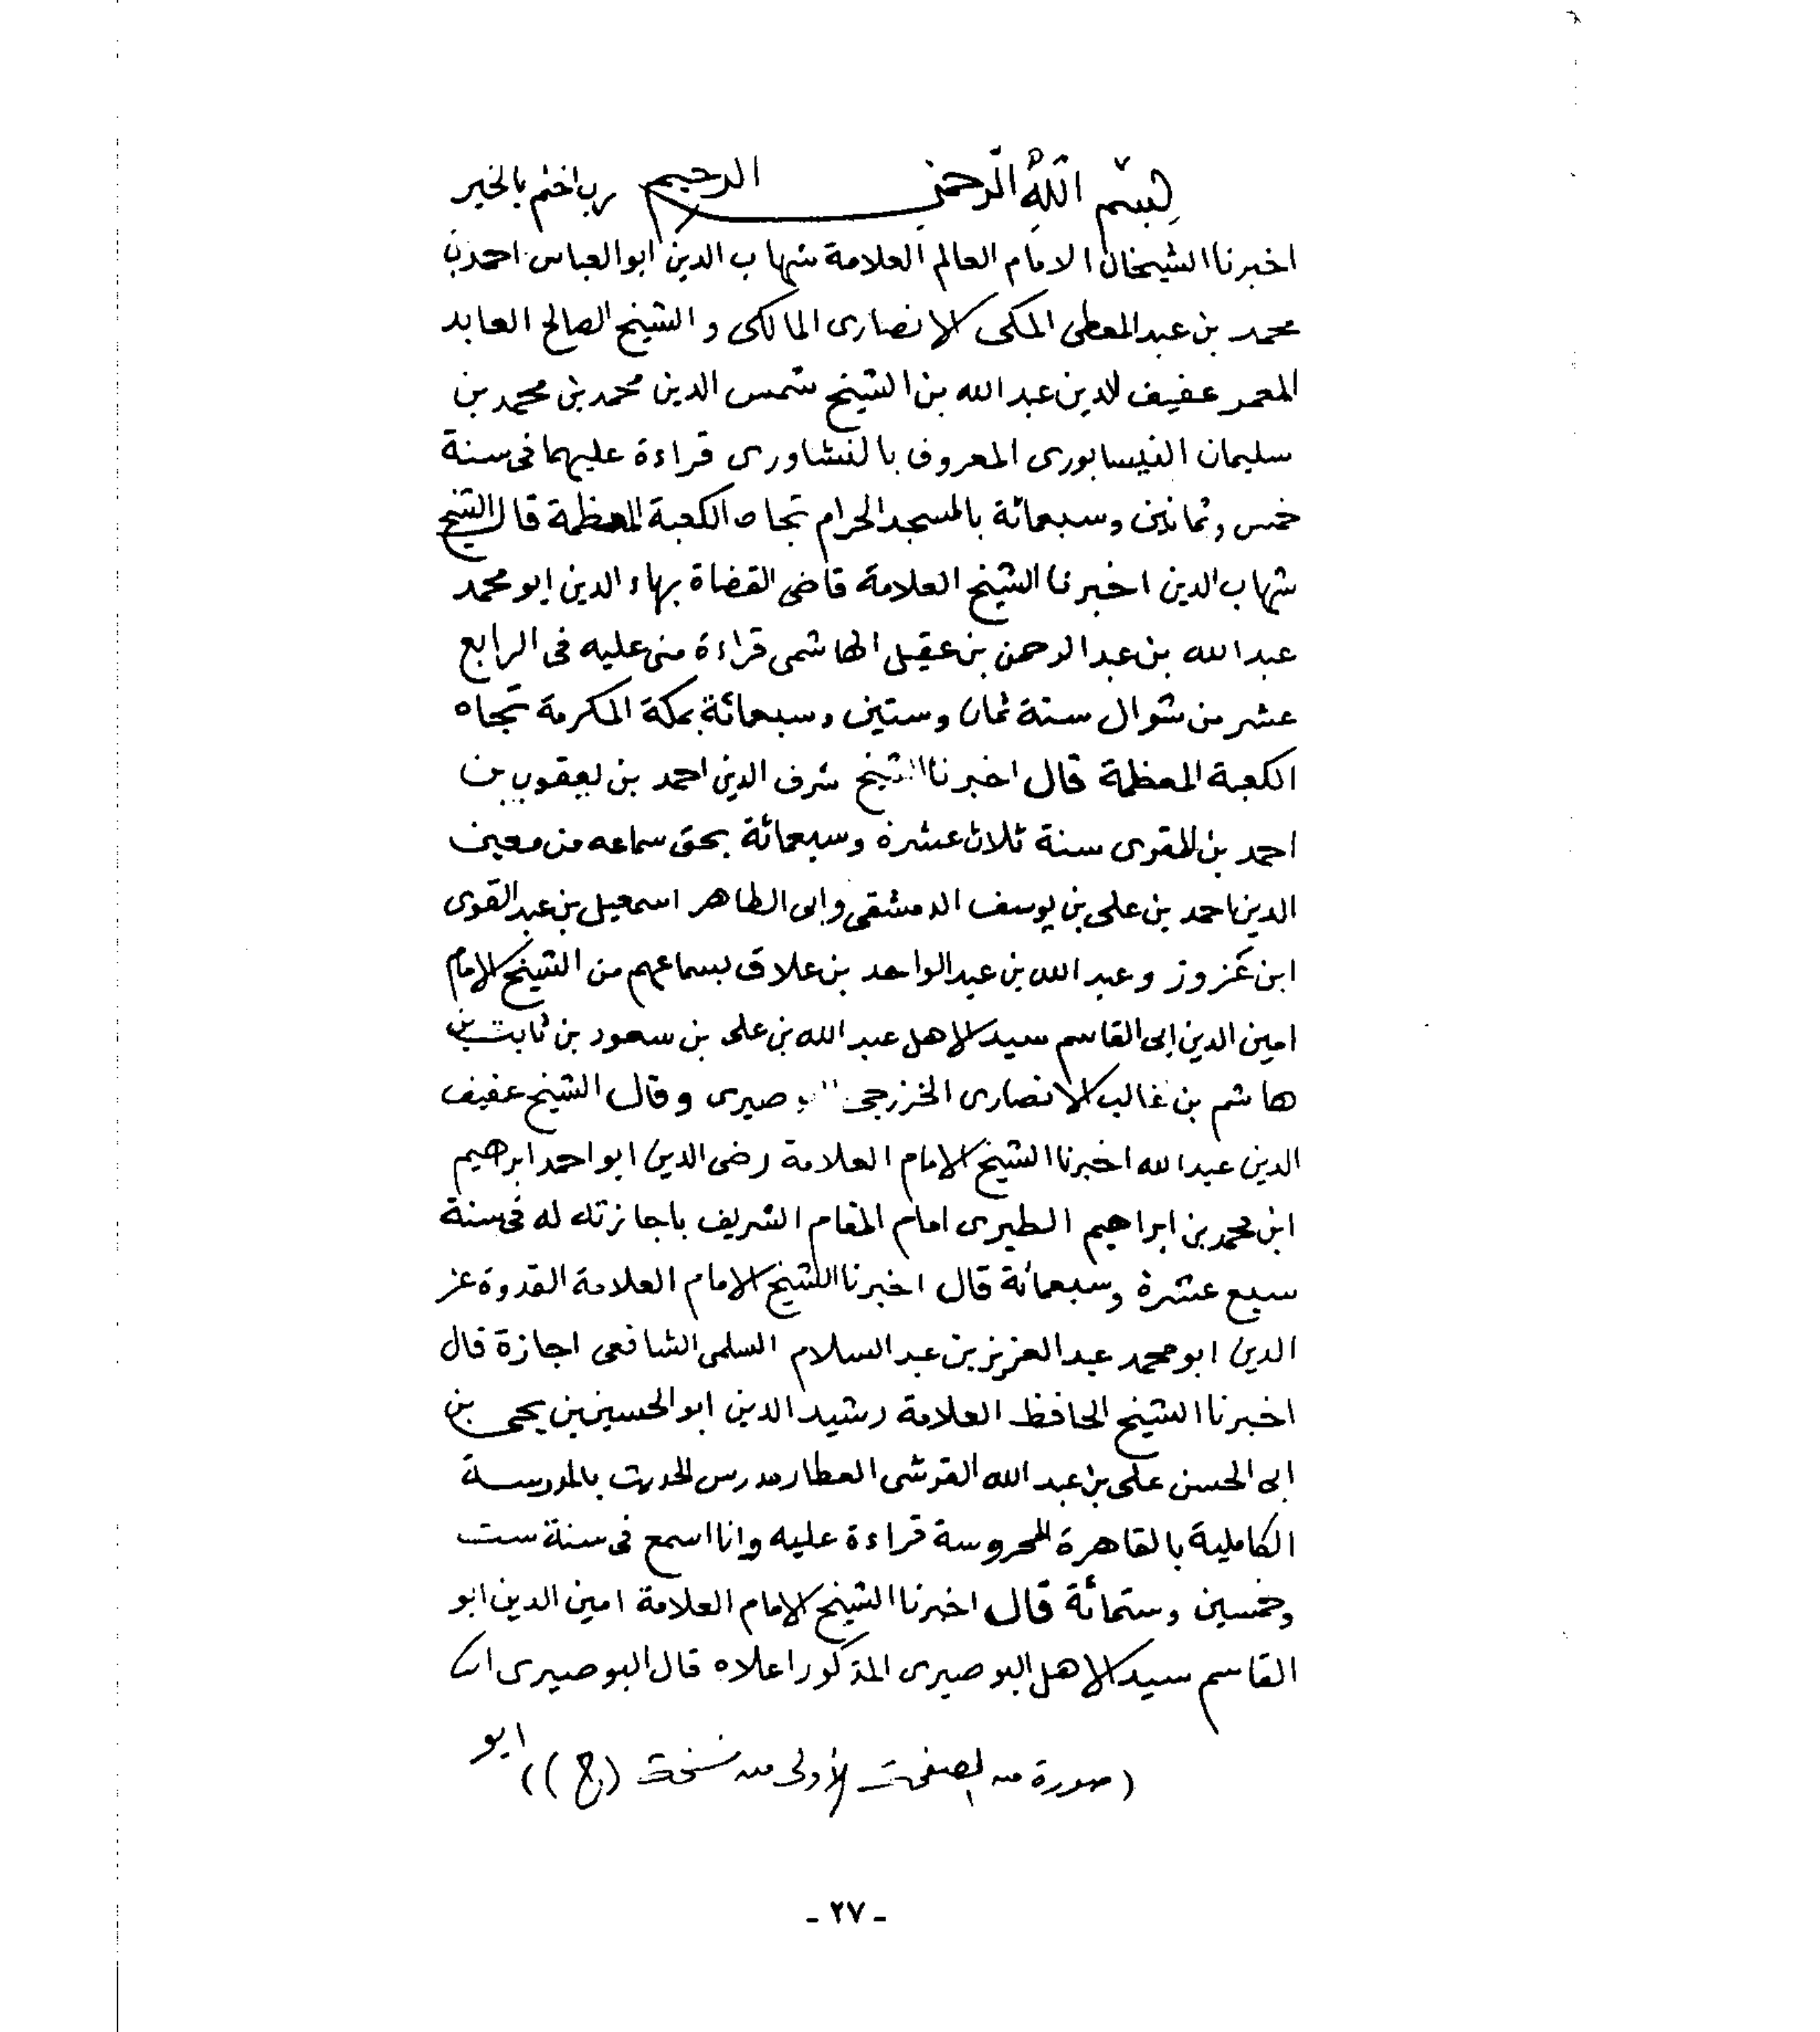 بِسْمِ اللهِ الرَّحمن الرحيم رب اختم بالخير
اخبرنا الشيخان الامام العالم العلامة شهاب الدين ابوالعباس احمد بن
محمد بن عبدالمعطى المكى الانصارى المالكى و الشيخ الصالح العابد
المعمر عفيف الدين عبد الله بن الشيخ شمس الدين محمد بن محمد بن
سليمان النيسابورى المعروف بالنشاورى قراءة عليهما فى سنة
خمس وثمانين وسبعمائة بالمسجد الحرام تجاه الكعبة المعظمة قال الشيخ
شهاب الدين اخبرنا الشيخ العلامة قاضى القضاة بهاء الدين ابو محمد
عبد الله بن عبد الرحمن بن عقيل الهاشمى قراءة منى عليه فى الرابع
عشر من شوال سنة ثمان وستين وسبعمائة بمكة المكرمة تجاه
الكعبة المعظمة قال اخبرنا الشيخ شرف الدين احمد بن يعقوب بن
احمد بن المقرى سنة ثلاث عشرة وسبعمائة بحق سماعه من معين
الدين احمد بن على بن يوسف الدمشقى وابى الطاهر اسمعيل بن عبد القوى
ابن عزوز وعبد الله بن عبد الواحد بن علاق بسماعهم من الشيخ الامام
امين الدين ابى القاسم سيد الاهل عبد الله بن على بن سعود بن ثابت بن
هاشم بن غالب الانصارى الخزرجى البوصيرى وقال الشيخ عفيف
الدين عبد الله اخبرنا الشيخ الامام العلامة رضى الدين ابو احمد ابرهيم
ابن محمد بن ابراهيم الطبرى امام المقام الشريف باجازته له فى سنة
سبع عشرة وسبعمائة قال اخبرنا الشيخ الامام العلامة القدوة عز
الدين ابو محمد عبد العزيز بن عبد السلام السلمى الشافعى اجازة قال
اخبرنا الشيخ الحافظ العلامة رشيد الدين ابو الحسين بن يحيى بن
ابى الحسن على بن عبد الله القرشى العطار مدرس الحديث بالمدرسة
الكاملية بالقاهرة المحروسة قراءة عليه وانا اسمع فى سنة ست
وخمسين وستمائة قال اخبرنا الشيخ الامام العلامة امين الدين ابو
القاسم سيد الاهل البوصيرى المذكور اعلاه قال البوصيرى انا
ابو
(صورة من الصفحة الأولى من نسخة (ج))
- ٢٧ -